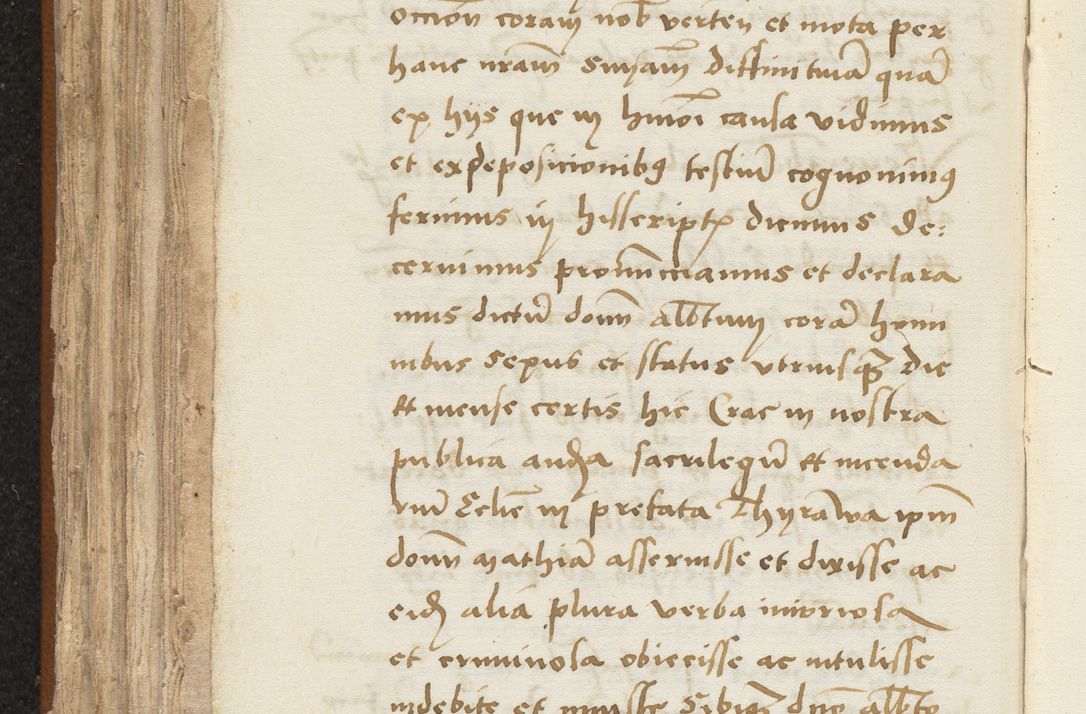 occion coram nob verten et mota per
hanc nram smȷam diffinitiua qua
ex hijs que in huioi causa vidimus
et ex deposicionibꝯ testiu cognouimꝯ
ferimus in hijs scriptꝭ dicimus de:
cernimus pronunciamus et declara
mus dictu domi albtum cora homi
nibus sexus et status vtriusqꝫ die
et mense certis hic Crac in nostra
publica audia sacrilegu et incenda
riu Eclie in prefata Thyrawa ipm
domi Mathia asseruisse et dixisse ac
eidꝫ alia plura verba inioriosa
et criminosa obiecisse ac intulisse
indebite et iniuste Sibiqꝫ dno albto